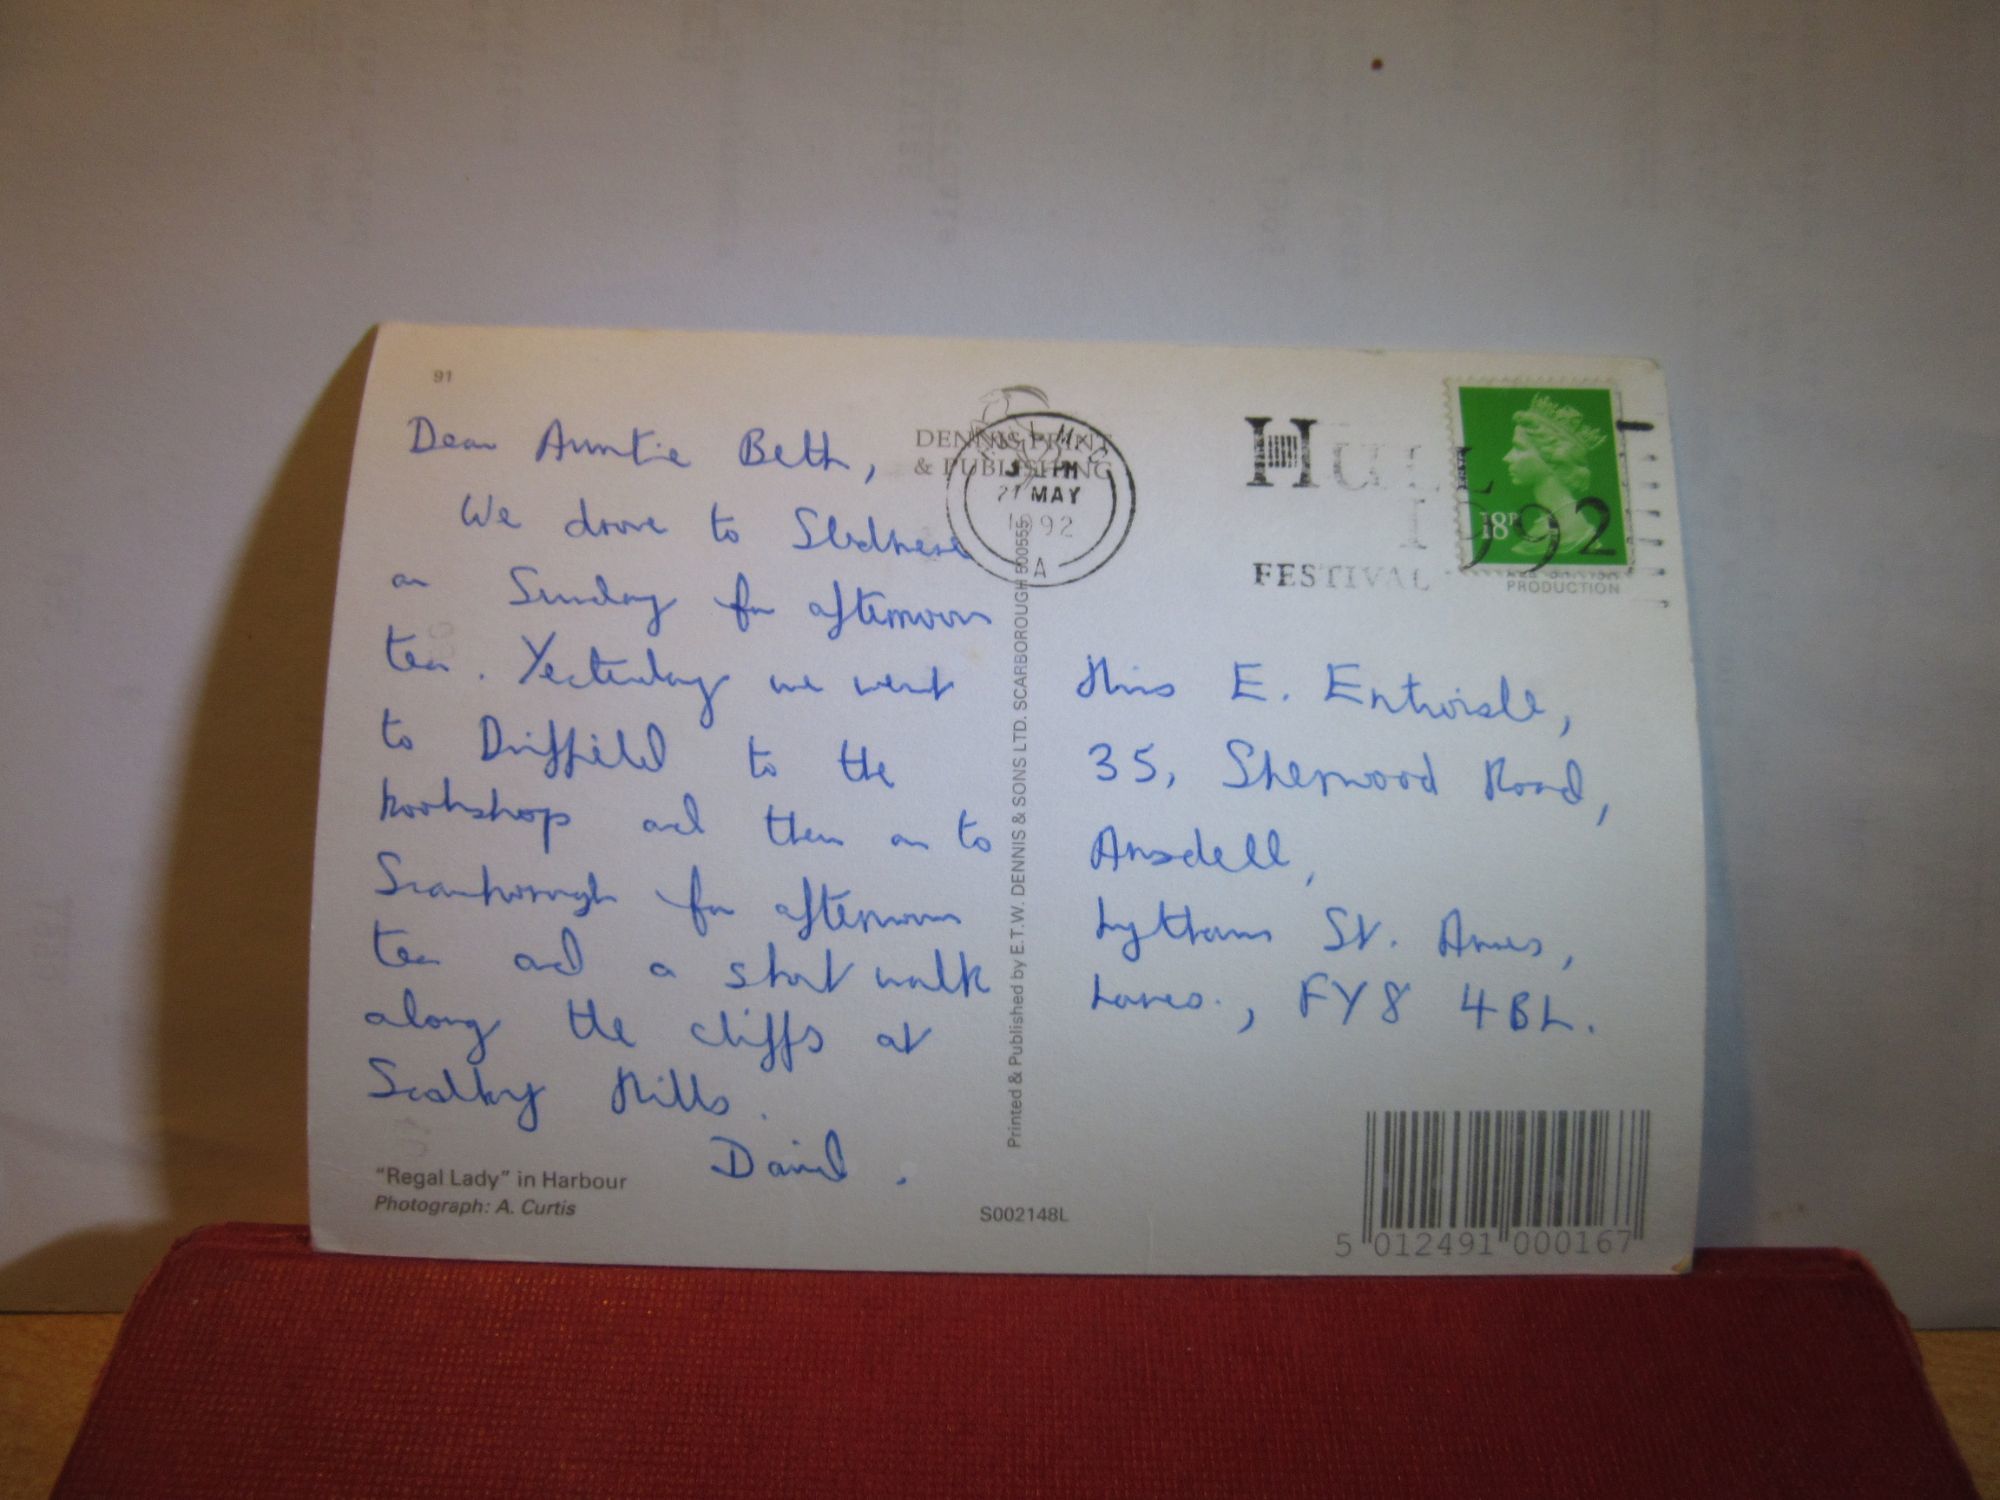 91
Dear Auntie Beth,
We drove to Sledmere
on Sunday for afternoon
tea. Yesterday we went
to Driffield to the
bookshop and then on to
Scarborough for afternoon
tea and a short walk
along the cliffs at
Scalby Mills.
David.
"Regal Lady" in Harbour
Photograph: A. Curtis
DENNIS PRINT
& PUBLISHING
MAY
1992
A
Printed & Published by E.T.W. DENNIS & SONS LTD. SCARBOROUGH 500555
S002148L
HULL
1992
FESTIVAL
18P
PRODUCTION
Miss E. Entwisle,
35, Sherwood Road,
Ansdell,
Lytham St. Annes,
Lancs., FY8 4BL.
5 012491 000167